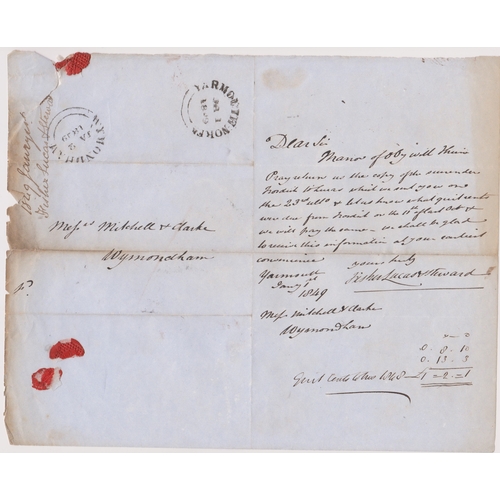 YARMOUTH-NORFK
JA 1
1849
WYMONDHAM
JA 2
1849
Fisher Lucas & Steward
Messrs Mitchell & Clarke
Wymondham
Dear Sir
Manor of Oby with Thirne
Pray return us the copy of the surrender
to Lucas which we sent you on
the 23rd ulto & let us know what quit rents
were due from on the 11th of last Oct &
we will pay the same - we shall be glad
to receive this information at your earliest
convenience
yours truly
Fisher Lucas & Steward
Yarmouth
Jany 1st
1849
Messrs Mitchell & Clarke
Wymondham
0 . 8 . 10
0 . 13 . 3
1848 - £1 = 2 = 1